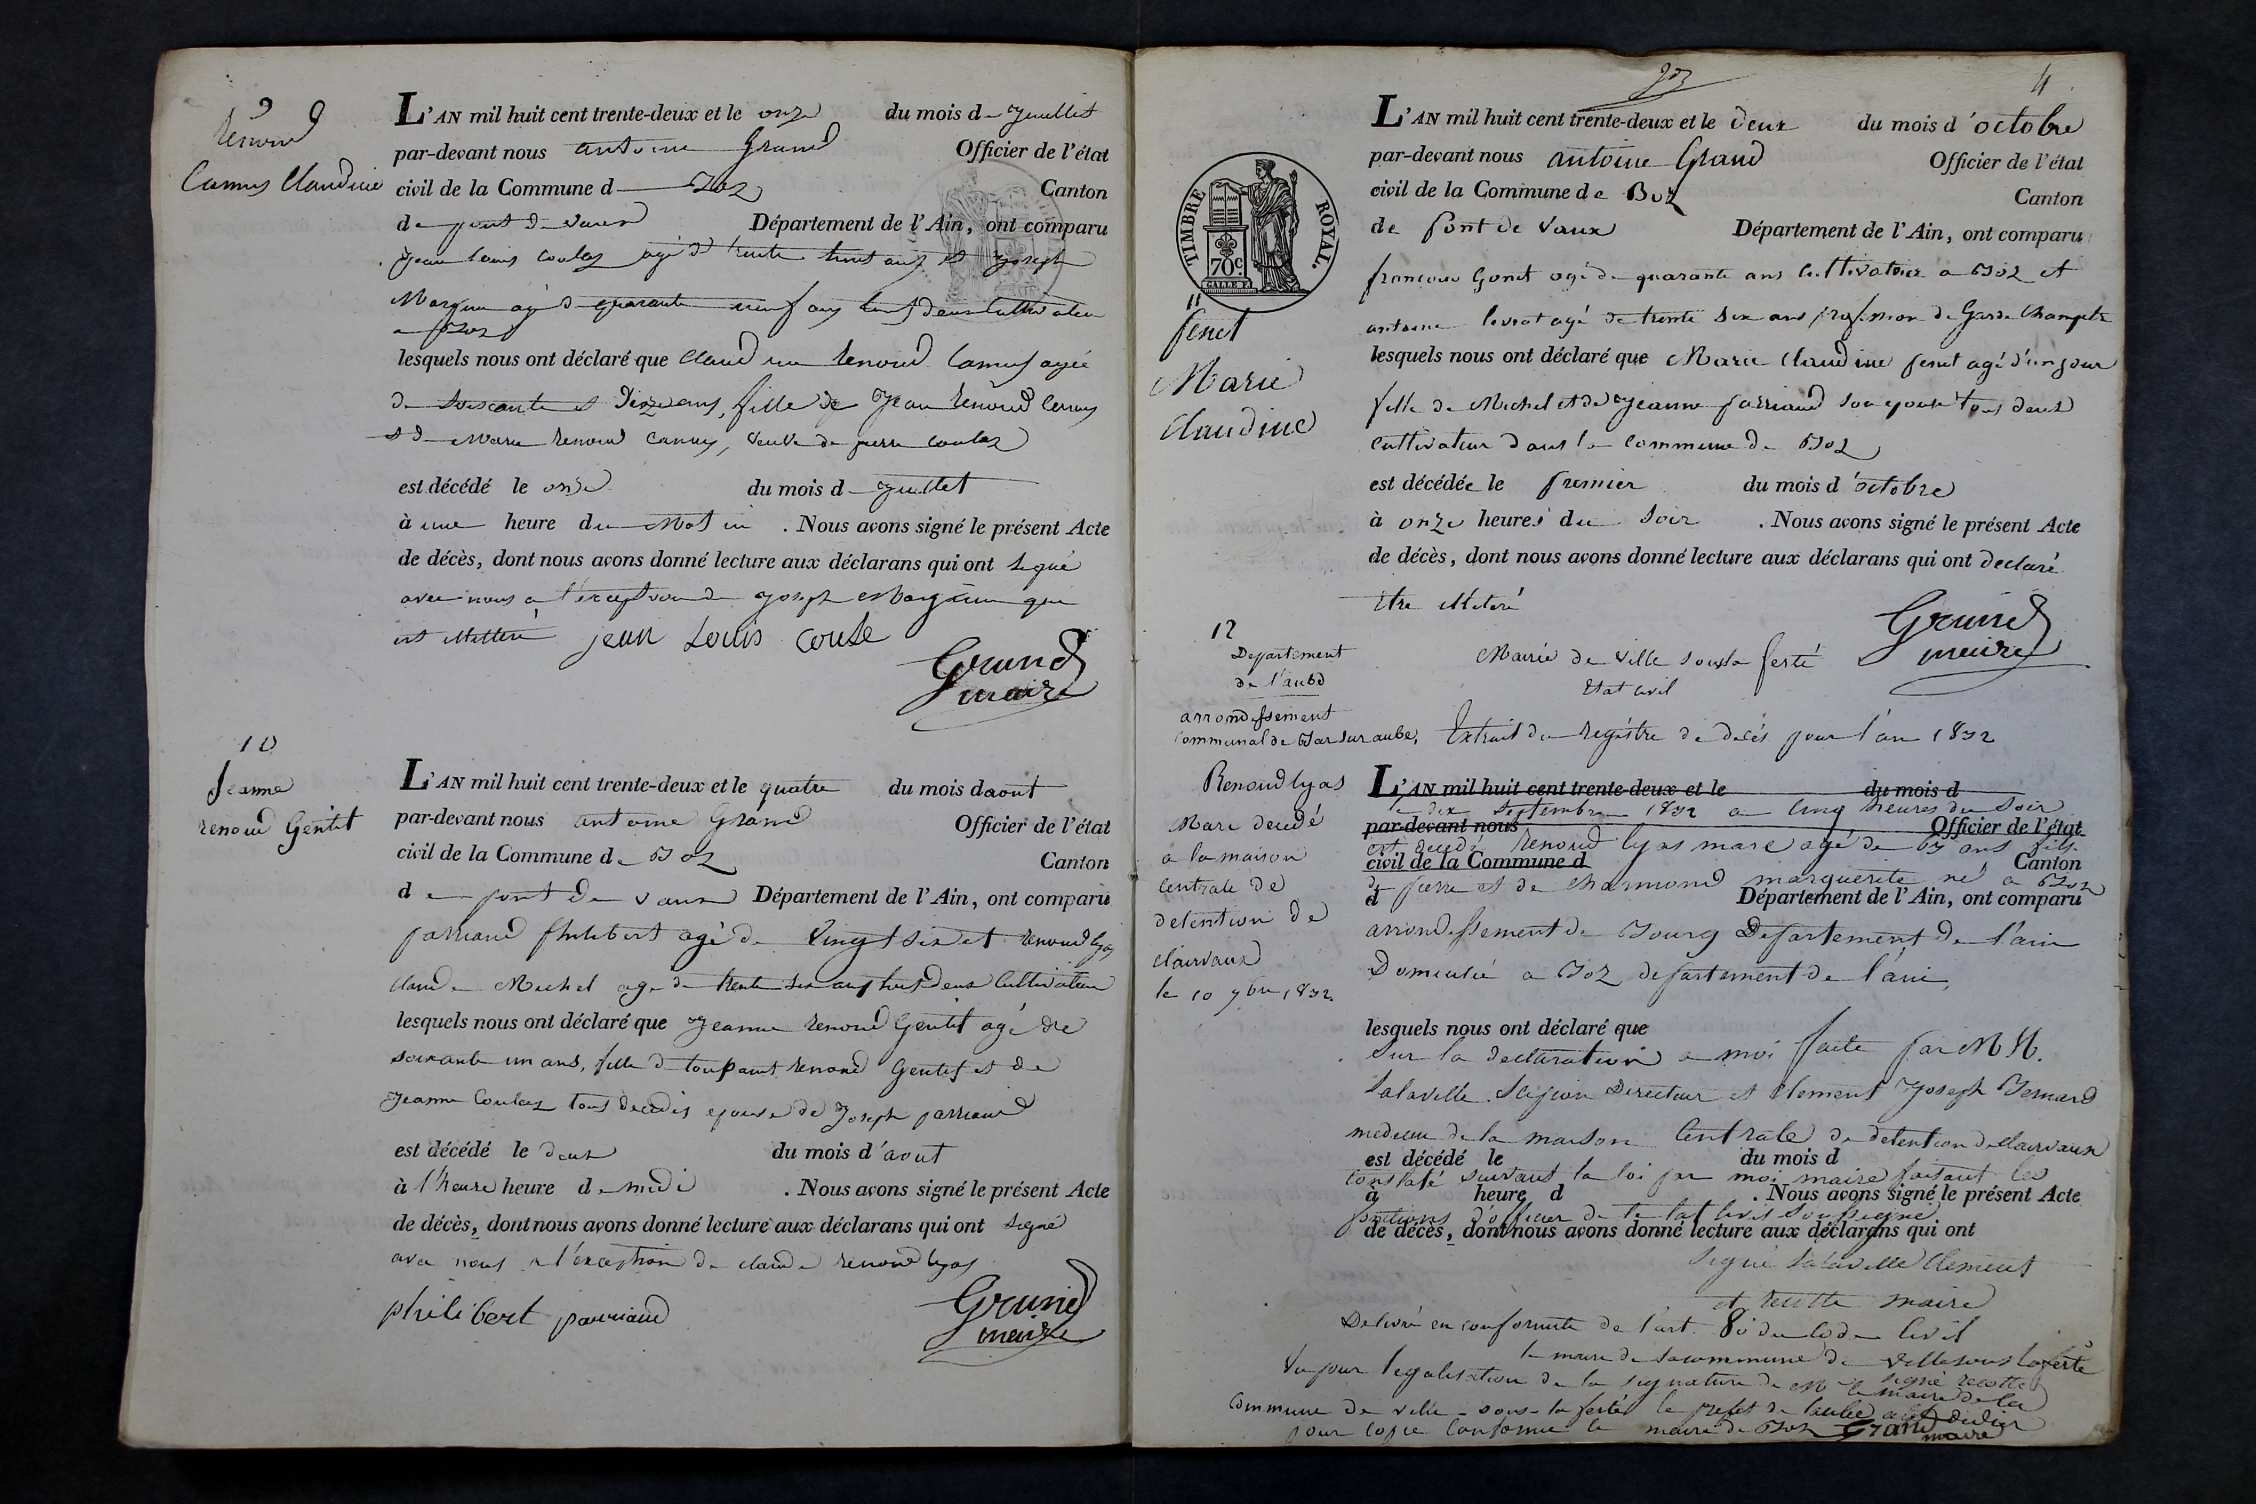 9
Renoud
Camus Claudine
L'AN mil huit cent trente-deux et le onze du mois de Juillet
par-devant nous antoine Grand Officier de l'état
civil de la Commune de Boz Canton
de pont de vaux Département de l'Ain, ont comparu
Jean louis coulas agé de trente huit ans et Joseph
Morgnin agé de quarante neuf ans tous deux cultivateur
a Boz
lesquels nous ont déclaré que Claudine Renoud Camus agée
de soixante et dix ans, fille de Jean Renoud Camus
et de Marie Renoud Camus, veuve de pierre coulas
est décédé le onze du mois de Juillet
à une heure du Matin . Nous avons signé le présent Acte
de décès, dont nous avons donné lecture aux déclarans qui ont signé
avec nous a l'exception de Joseph Morgnin qui
est illitteré jean Louis coula
Grand
maire
10
Jeanne
renoud Gentit
L'AN mil huit cent trente-deux et le quatre du mois daout
par-devant nous antoine Grand Officier de l'état
civil de la Commune de Boz Canton
de pont de vaux Département de l'Ain, ont comparu
parriaud philibert agé de Vingt six et renoud lyas
claude Michel agé de trente six ans tous deux Cultivateur
lesquels nous ont déclaré que Jeanne renoud Gentit agé de
soixante un ans, fille de toussaint renoud Gentit et de
Jeanne Coulas tous decedés epouse de Joseph parriaud
est décédé le deux du mois d'aout
à l'heure heure de midi . Nous avons signé le présent Acte
de décès, dont nous avons donné lecture aux déclarans qui ont signé
avec nous a l'exception de claude renoud lyas
philibert parriaud
Grand
maire
4
TIMBRE ROYAL.
70c
11
fenet
Marie
Claudine
L'AN mil huit cent trente-deux et le deux du mois d'octobre
par-devant nous antoine Grand Officier de l'état
civil de la Commune de Boz Canton
de pont de vaux Département de l'Ain, ont comparu
francois Gonet agé de quarante ans cultivateur a Boz et
antoine levrat agé de trente six ans profession de Garde Champetre
lesquels nous ont déclaré que Marie Claudine fenet agé d'un jour
fille de Michel et de Jeanne parriaud son epouse tous deux
cultivateur dans la commune de Boz
est décédée le premier du mois d'octobre
à onze heures du soir . Nous avons signé le présent Acte
de décès, dont nous avons donné lecture aux déclarans qui ont declaré
etre illiteré
Grand
maire
12
Departement
de l'aube
arrondissement
communal de Bar sur aube,
Mairie de ville sous la ferté
Etat civil
Extrait du registre de decés pour l'an 1832
Renoud lyas
Marc decedé
a la maison
centrale de
detention de
clairvaux
le 10 7bre 1832
L'AN mil huit cent trente-deux et le du mois d
le dix septembre 1832 a cinq heures du soir
par-devant nous Officier de l'état
est decedé Renoud lyas marc agé de 67 ans fils
civil de la Commune d Canton
de pierre et de charmond marguerite né a Boz
d Département de l'Ain, ont comparu
arrondissement de Bourg Departement de l'ain
Domicilié a Boz departement de l'ain,
lesquels nous ont déclaré que
Sur la declaration a moi faite par MM.
Salaville Directeur et Clement Joseph Bernard
medecin de la maison Centrale de detention de clairvaux
est décédé le du mois d
constaté suivant la loi par moi maire faisant les
à heure d . Nous avons signé le présent Acte
fonctions d'officier de l'etat civil soussigné
de décès, dont nous avons donné lecture aux déclarans qui ont
signé Salaville Clement
et recotte maire
Delivré en conformité de l'art. 80 du code Civil
le maire de la commune de ville sous la ferté
signé recotte
Vu pour legalisation de la signature de Mr le maire de la
Commune de ville-sous-la ferté le prefet de l'aube
pour copie conforme le maire de Boz Grand
maire